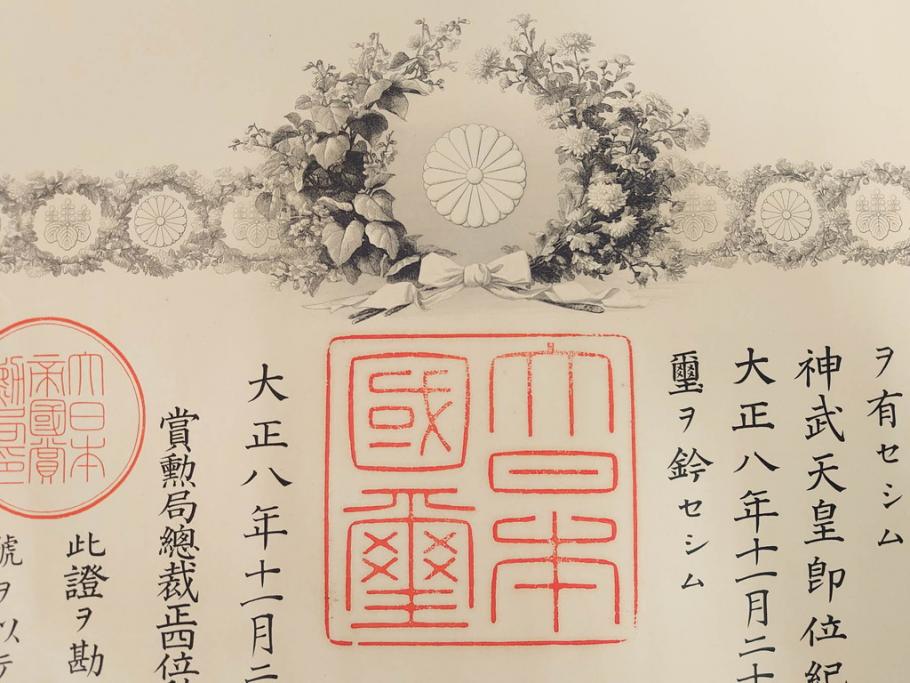 ヲ有セシム
神武天皇卽位紀
大正八年十一月二十
璽ヲ鈐セシム
大日本
國璽
大正八年十一月二
賞勲局總裁正四位
此證ヲ勘
號ヲ以テ
大日本
帝國賞
勲局印